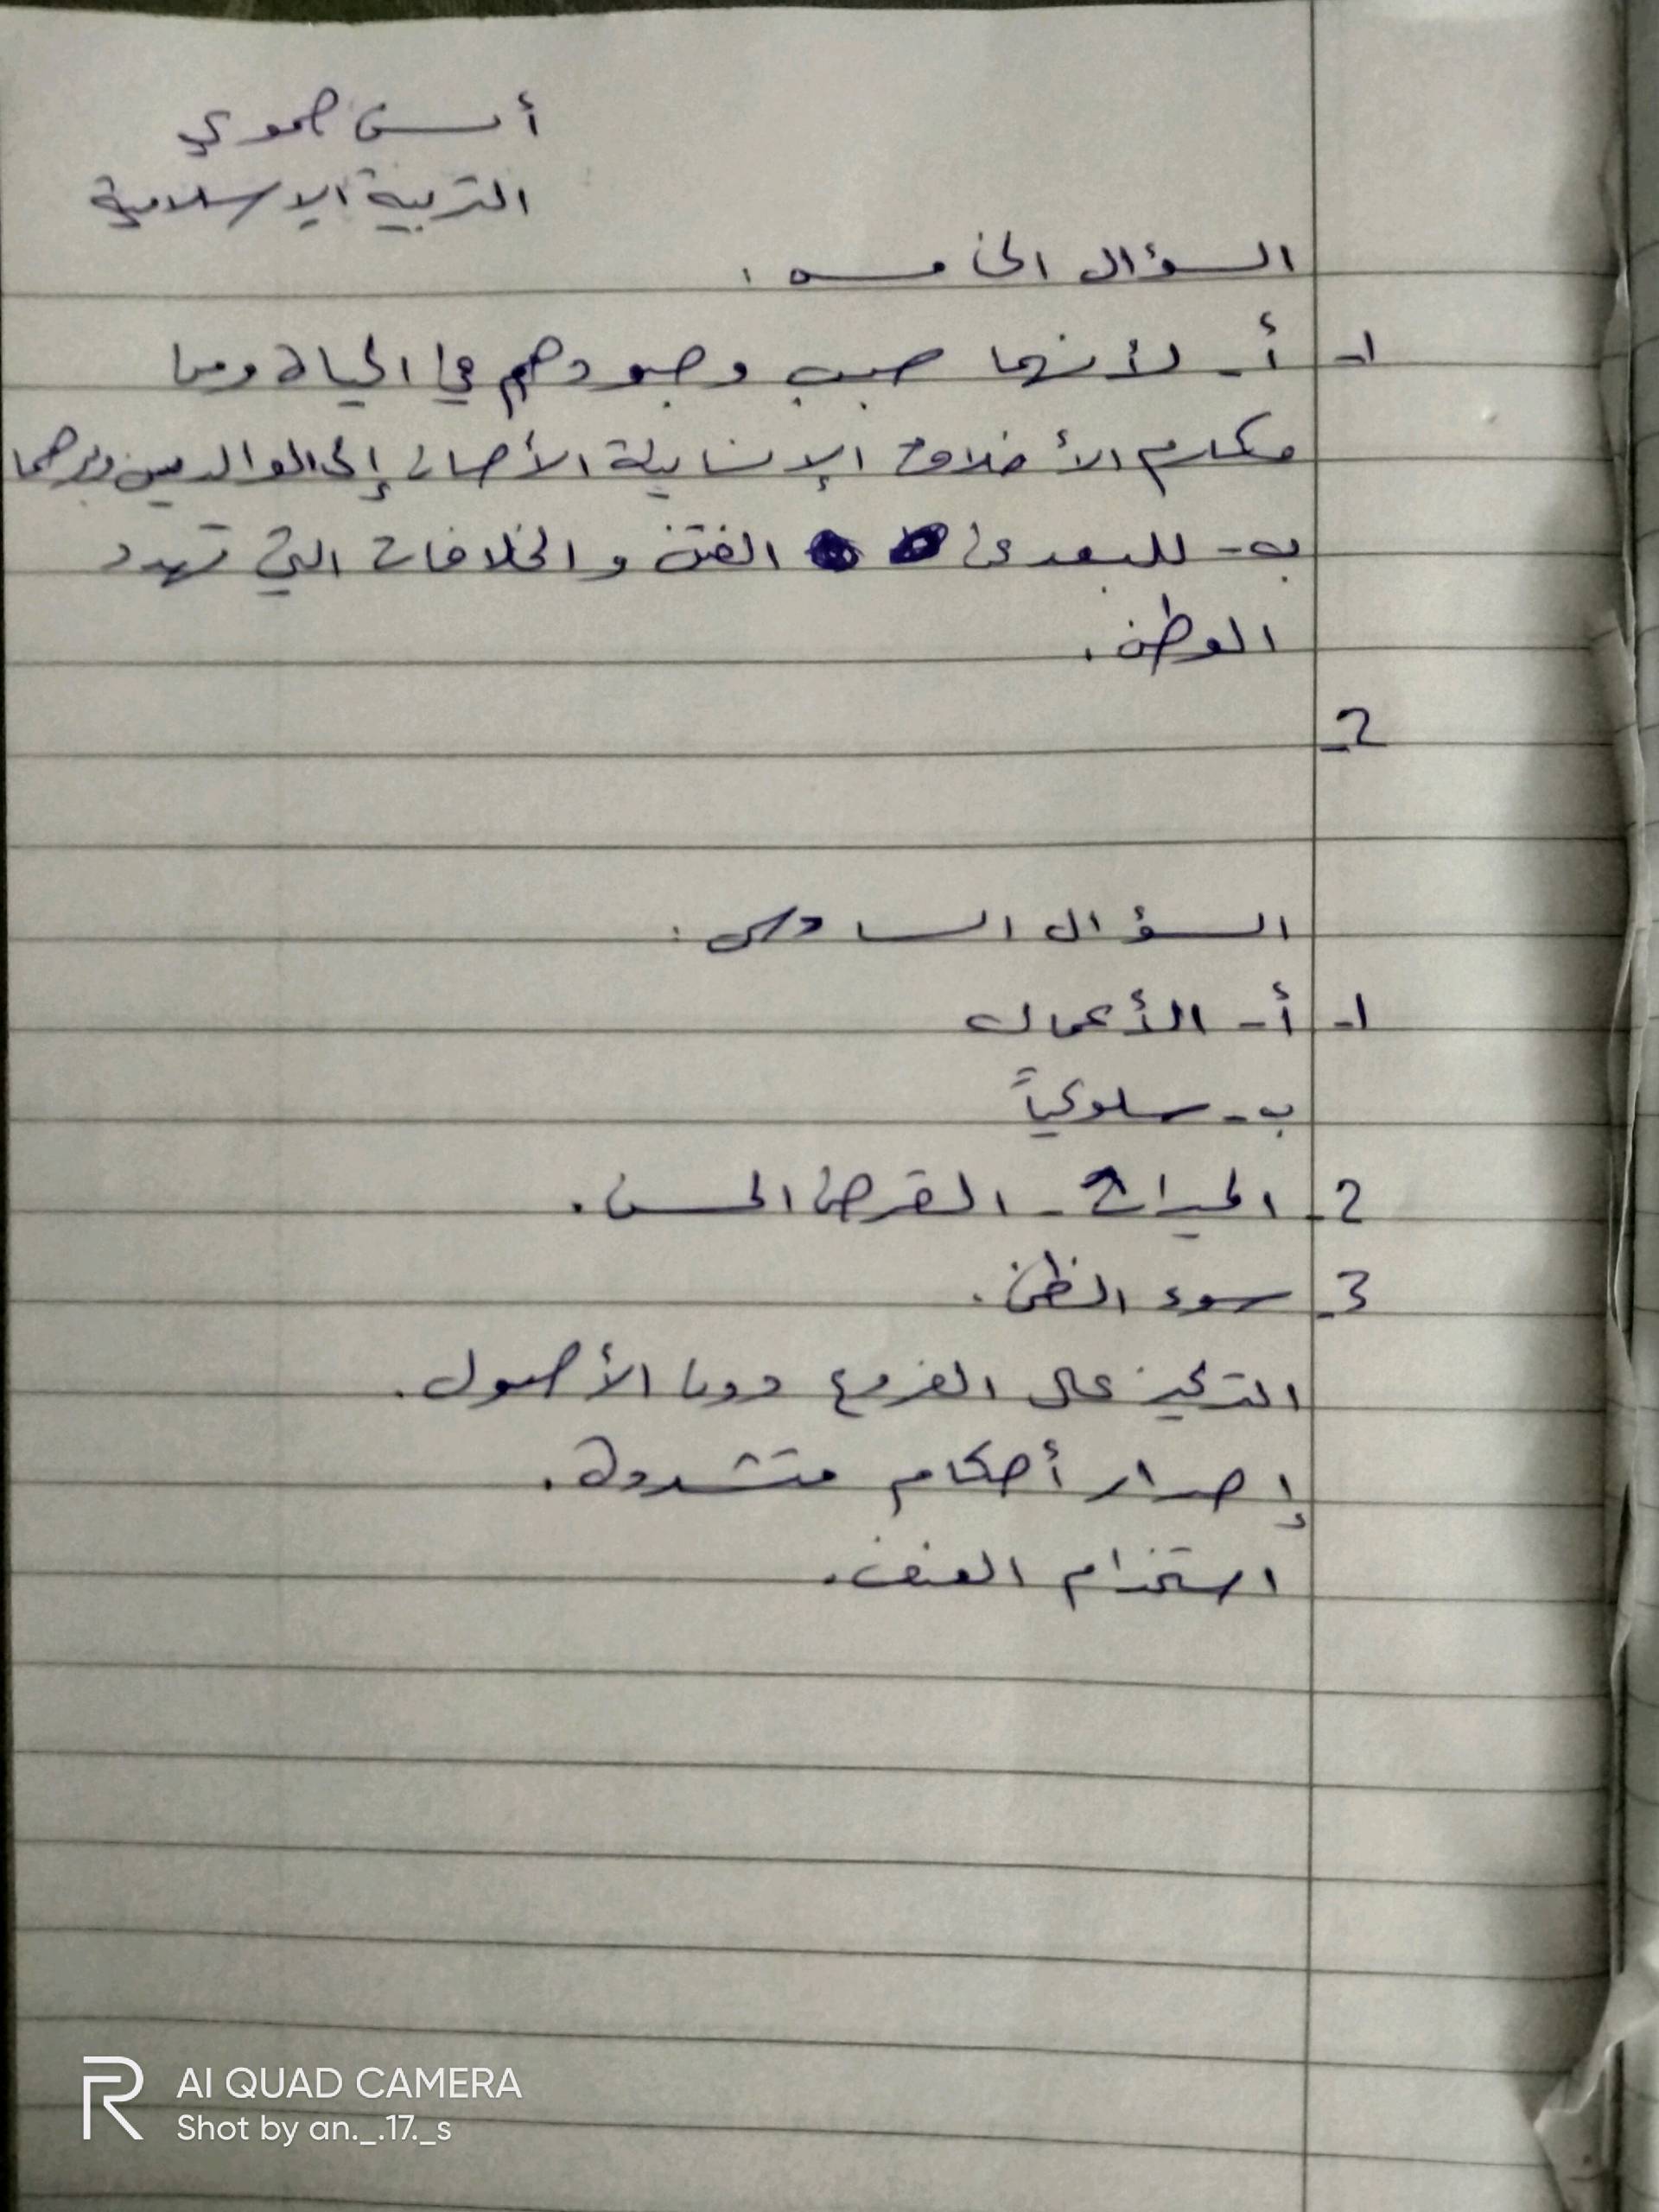 أنس حموي
التربية الإسلامية
السؤال الخامس :
1- أ- لأنهما سبب وجودهم في الحياة ومن
مكارم الأخلاق الإنسانية الأحسان إلى الوالدين وبرهما
ب- للبعد عن الفتن والخلافات التي تهدد
الوطن .
2-
السؤال السادس :
1- أ- الأعمال
ب- سلوكياً
2- الميراث - القرض الحسن .
3- سوء الظن .
التركيز على الفروع دون الأصول .
إصدار أحكام متشددة .
استخدام العنف .
AI QUAD CAMERA
Shot by an._.17._s